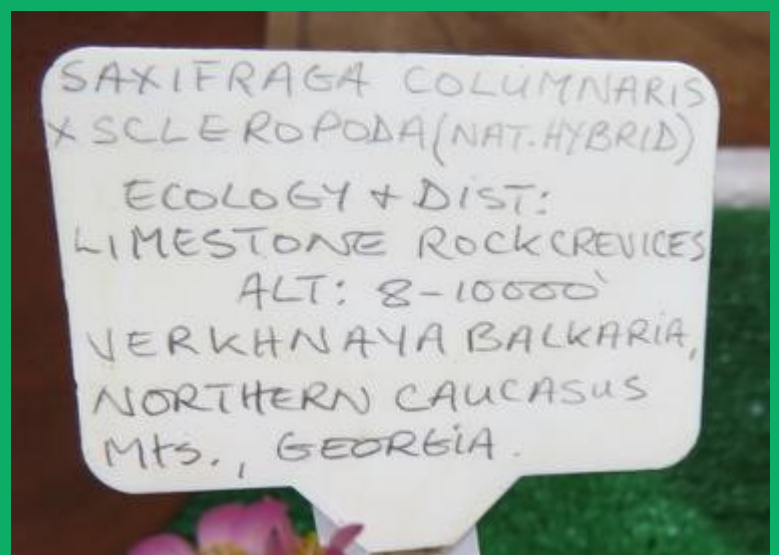 SAXIFRAGA COLUMNARIS
X SCLEROPODA (NAT. HYBRID)
ECOLOGY + DIST:
LIMESTONE ROCK CREVICES
ALT: 8-10000'
VERKHNAYA BALKARIA,
NORTHERN CAUCASUS
Mts., GEORGIA.